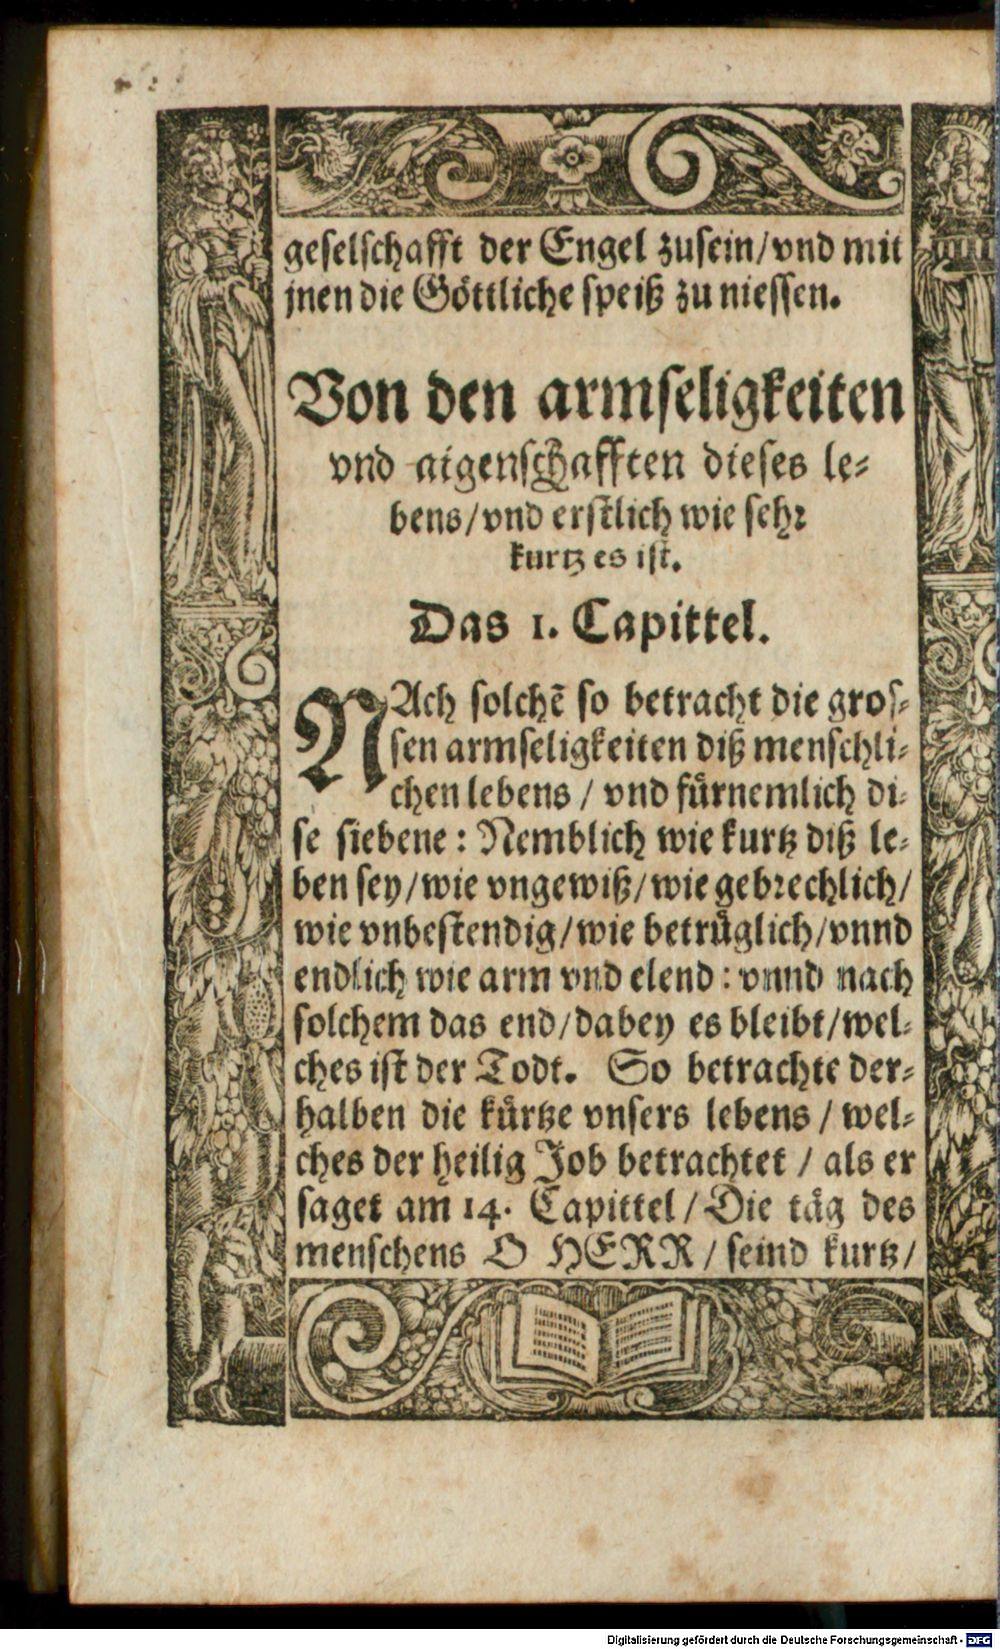 geselschafft der Engel zusein/vnd mit
jnen die Göttliche speiß zu niessen.
Von den armseligkeiten
vnd aigenschafften dieses le-
bens/vnd erstlich wie sehr
kurtz es ist.
Das 1. Capittel.
NAch solchē so betracht die gros-
sen armseligkeiten diß menschli-
chen lebens / vnd fürnemlich di-
se siebene: Nemblich wie kurtz diß le-
ben sey/wie vngewiß/wie gebrechlich/
wie vnbestendig/wie betrüglich/vnnd
endlich wie arm vnd elend: vnnd nach
solchem das end/dabey es bleibt/wel-
ches ist der Todt. So betrachte der-
halben die kürtze vnsers lebens / wel-
ches der heilig Job betrachtet / als er
saget am 14. Capittel/Die täg des
menschens O HERR/ seind kurtz/
Digitalisierung gefördert durch die Deutsche Forschungsgemeinschaft - DFG